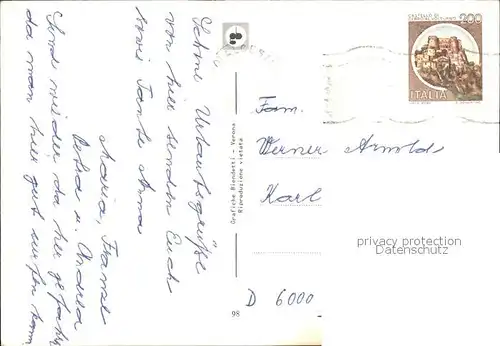 Schöne Urlaubsgrüße
von hier senden Euch
Eure Tante Anna
Maria, Franze
Petra u. Andrea
Sind wieder da her gefahren
da man hier gut surfen kann
Grafiche Biondetti - Verona
Riproduzione vietata
98
CASTELLO DI
200
ITALIA
Fam.
Werner Arnold
Karl
D 6000
privacy protection
Datenschutz